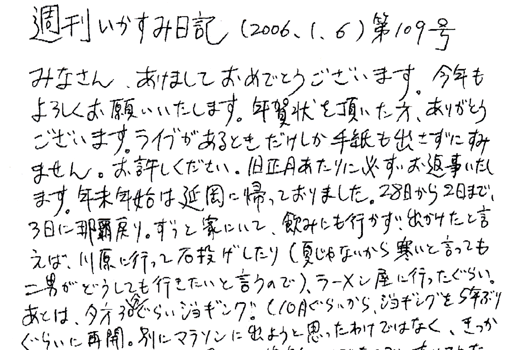 週刊いかすみ日記 (2006.1.6) 第109号
みなさん、あけましておめでとうございます。今年も
よろしくお願いいたします。年賀状を頂いた方、ありがとう
ございます。ライブがあるときだけしか手紙も出さずにすみ
ません。お許しください。旧正月あたりに必ずお返事いたし
ます。年末年始は延岡に帰っておりました。28日から2日まで、
3日に那覇戻り。ずっと家にいて、飲みにも行かず、出かけたと言
えば、川原に行って石投げしたり(夏じゃないから寒いと言っても
二男がどうしても行きたいと言うので)、ラーメン屋に行ったぐらい。
あとは、夕方30分ぐらいジョギング。(10月ぐらいから、ジョギングを5年ぶり
ぐらいに再開。別にマラソンに出ようと思ったわけではなく、きっか